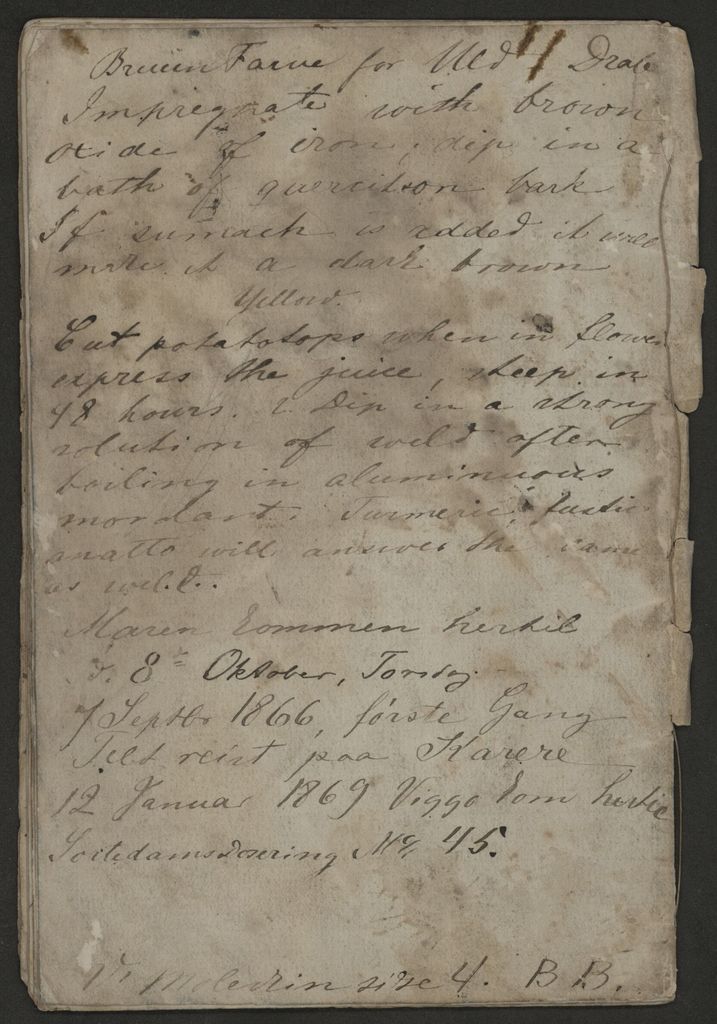 Bruun Farve for Uld
Impregnate with brown
oxide of iron; dip in a
bath of quercitron bark
If sumach is added it will
make it a dark brown
Yellow.
Cut potatotops when in flower
express the juice, steep in
48 hours. & Dip in a strong
solution of weld after
boiling in aluminuous
mordant. Turmeric, fustic
anatto will answer the same
as weld.
Maren kommen hertil
d. 8 Oktober, Torsdag
7 Septbr 1866, første Gang
Telt reist paa Karere
12 Januar 1869 Viggo kom hertil
Sortedamsdosering No 45.
size 4. B B.